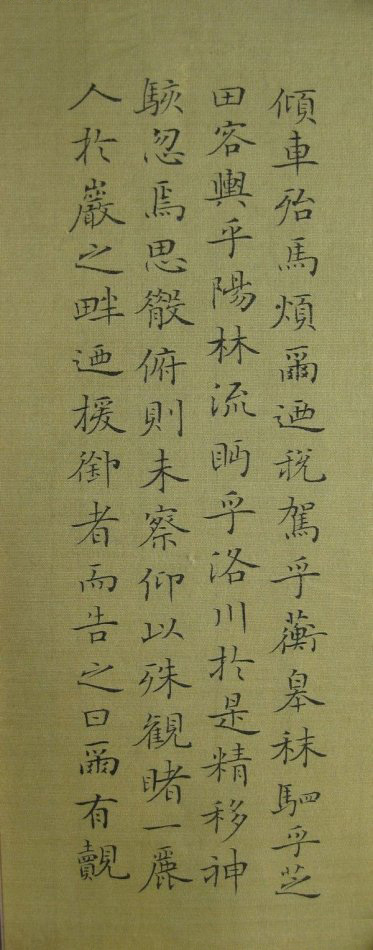 傾車殆馬煩爾迺稅駕乎蘅皋秣駟乎芝
田容輿乎陽林流眄乎洛川於是精移神
駭忽焉思散俯則未察仰以殊觀睹一麗
人於巖之畔迺援御者而告之曰爾有覿